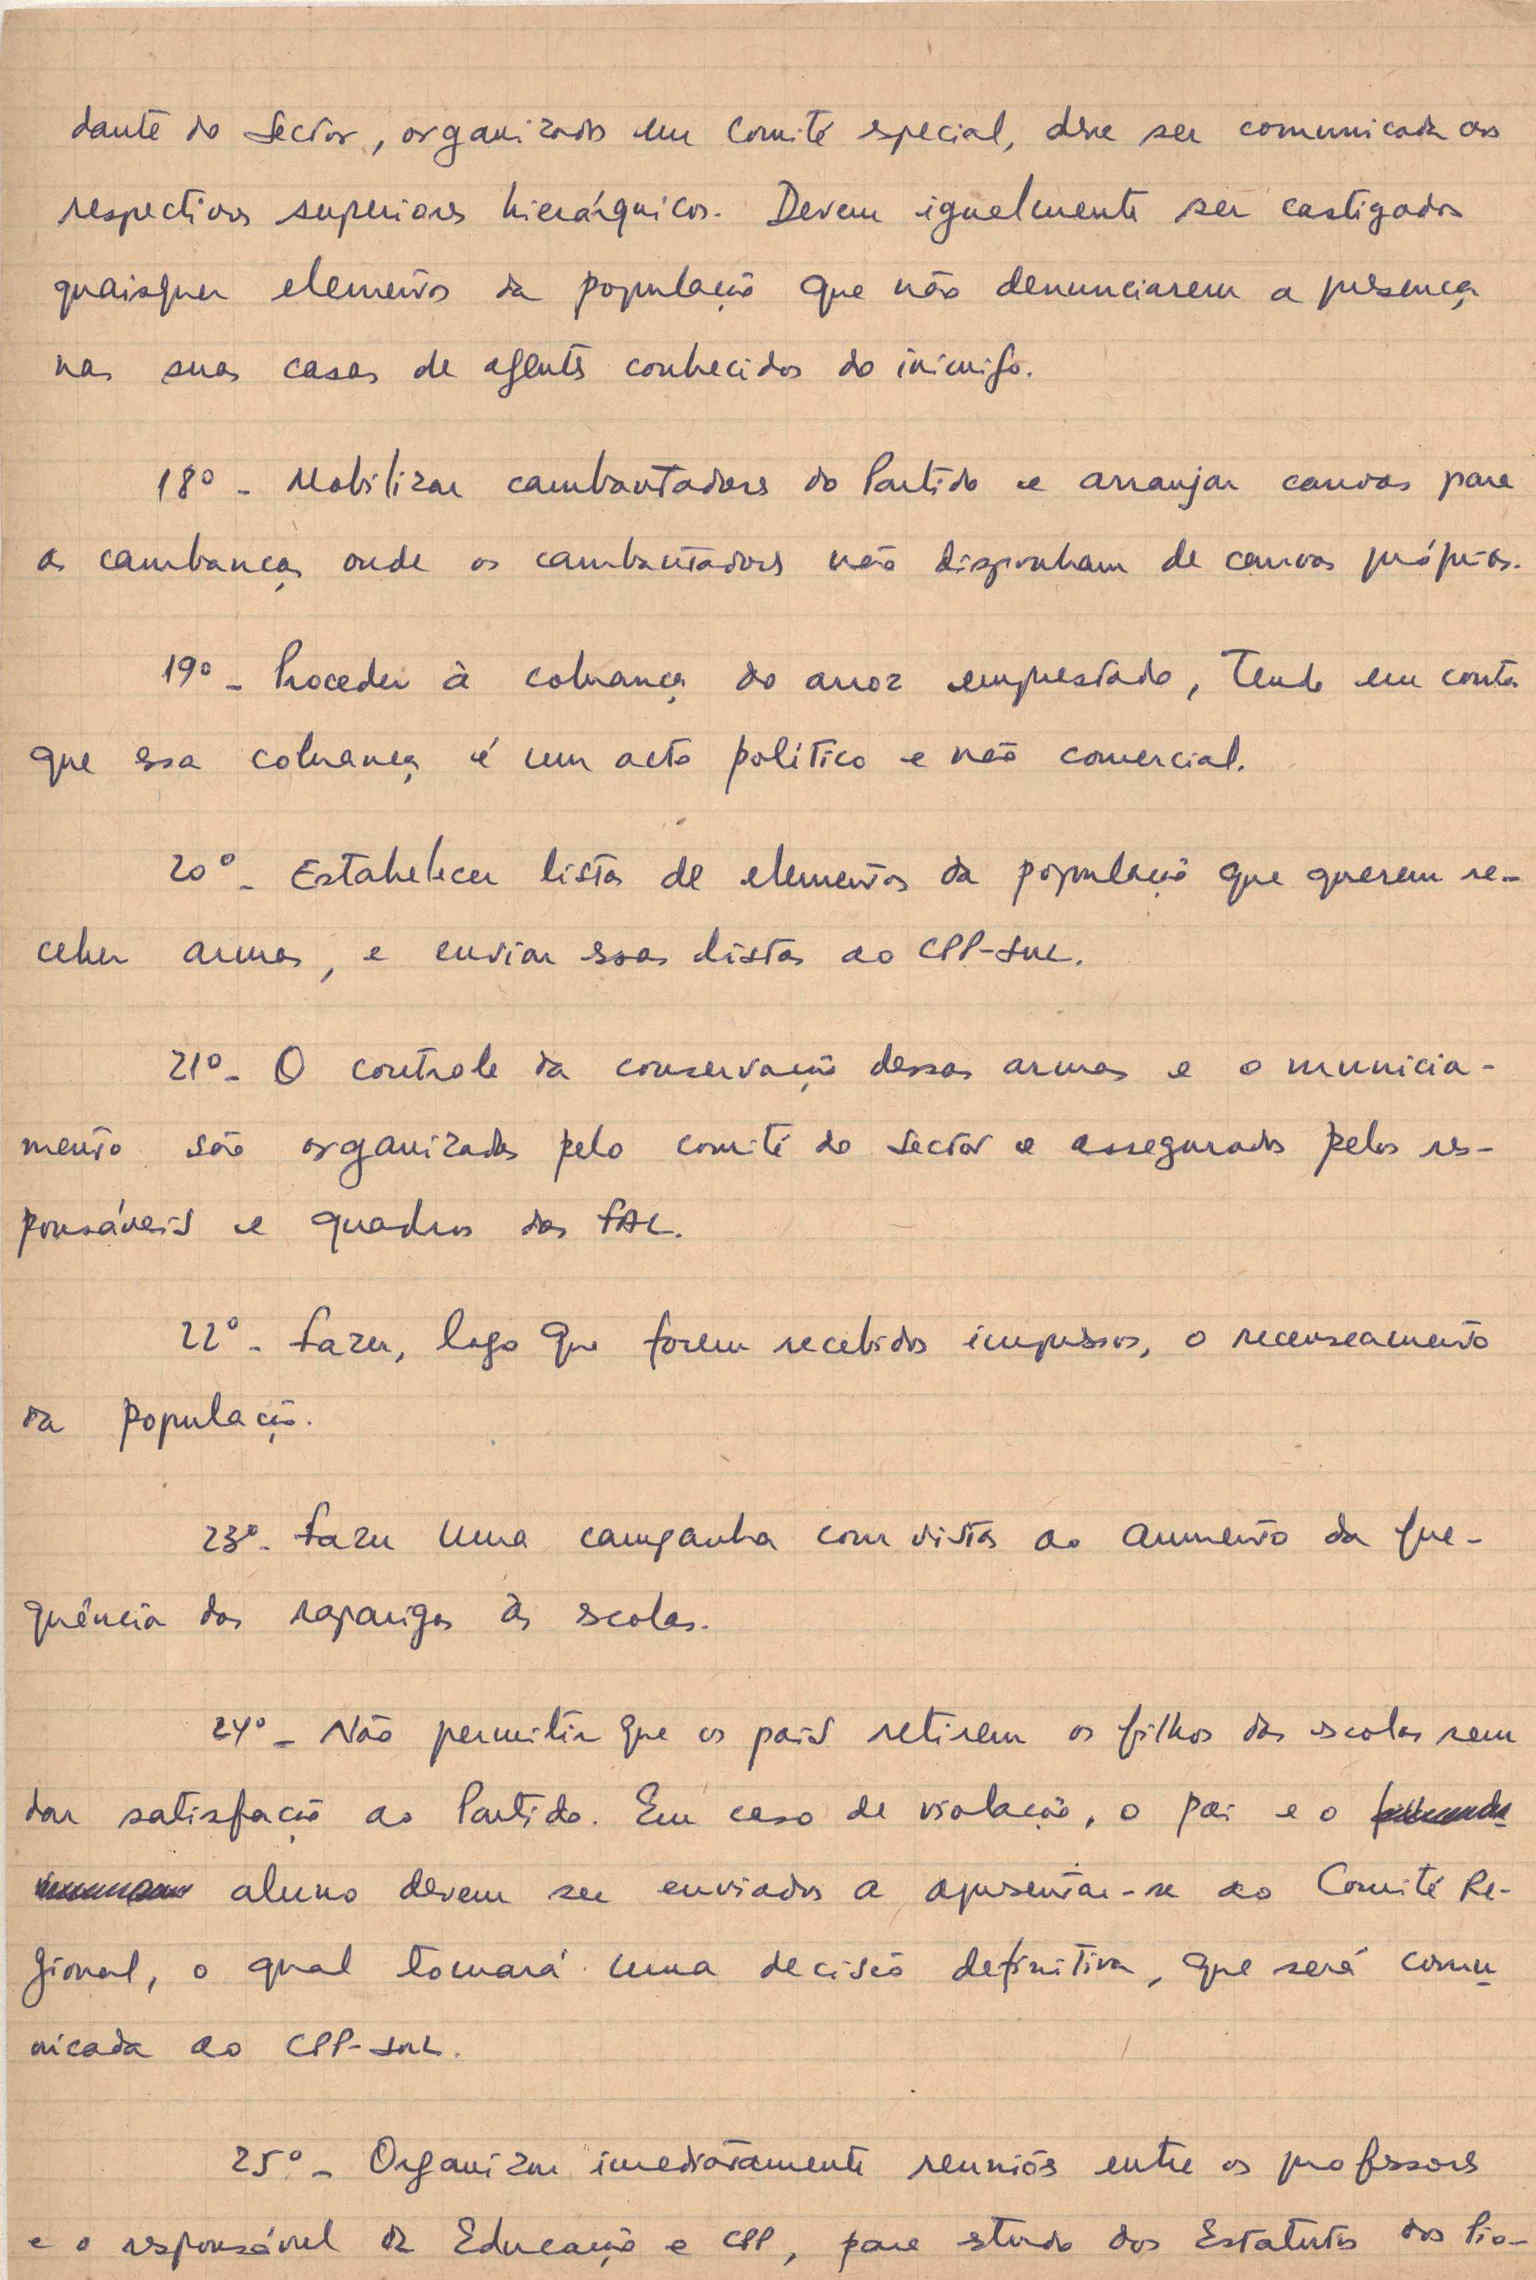 dante do Sector, organizado em Comité especial, deve ser comunicada aos
respectivos superiores hierárquicos. Devem igualmente ser castigados
quaisquer elementos da população que não denunciarem a presença
nas suas casas de agentes conhecidos do inimigo.
18º - Mobilizar cambantadores do Partido e arranjar canoas para
as cambanças onde os cambantadores não disponham de canoas próprias.
19º - Proceder à cobrança do arroz emprestado, tendo em conta
que essa cobrança é um acto político e não comercial.
20º - Estabelecer listas de elementos da população que querem re-
ceber armas, e enviar essas listas ao CPP-Sul.
21º - O controle da conservação dessas armas e o municia-
mento são organizados pelo comité do Sector e assegurados pelos res-
ponsáveis e quadros das FAL.
22º - Fazer, logo que forem recebidos impressos, o recenseamento
da população.
23º - Fazer uma campanha com vista ao aumento da fre-
quência das raparigas às escolas.
24º - Não permitir que os pais retirem os filhos das escolas sem
dar satisfação ao Partido. Em caso de violação, o pai e o
aluno devem ser enviados a apresentar-se ao Comité Re-
gional, o qual tomará uma decisão definitiva, que será comu-
nicada ao CPP-Sul.
25º - Organizar imediatamente reuniões entre os professores
e o responsável da Educação e CPP, para estudo dos Estatutos dos Pio-